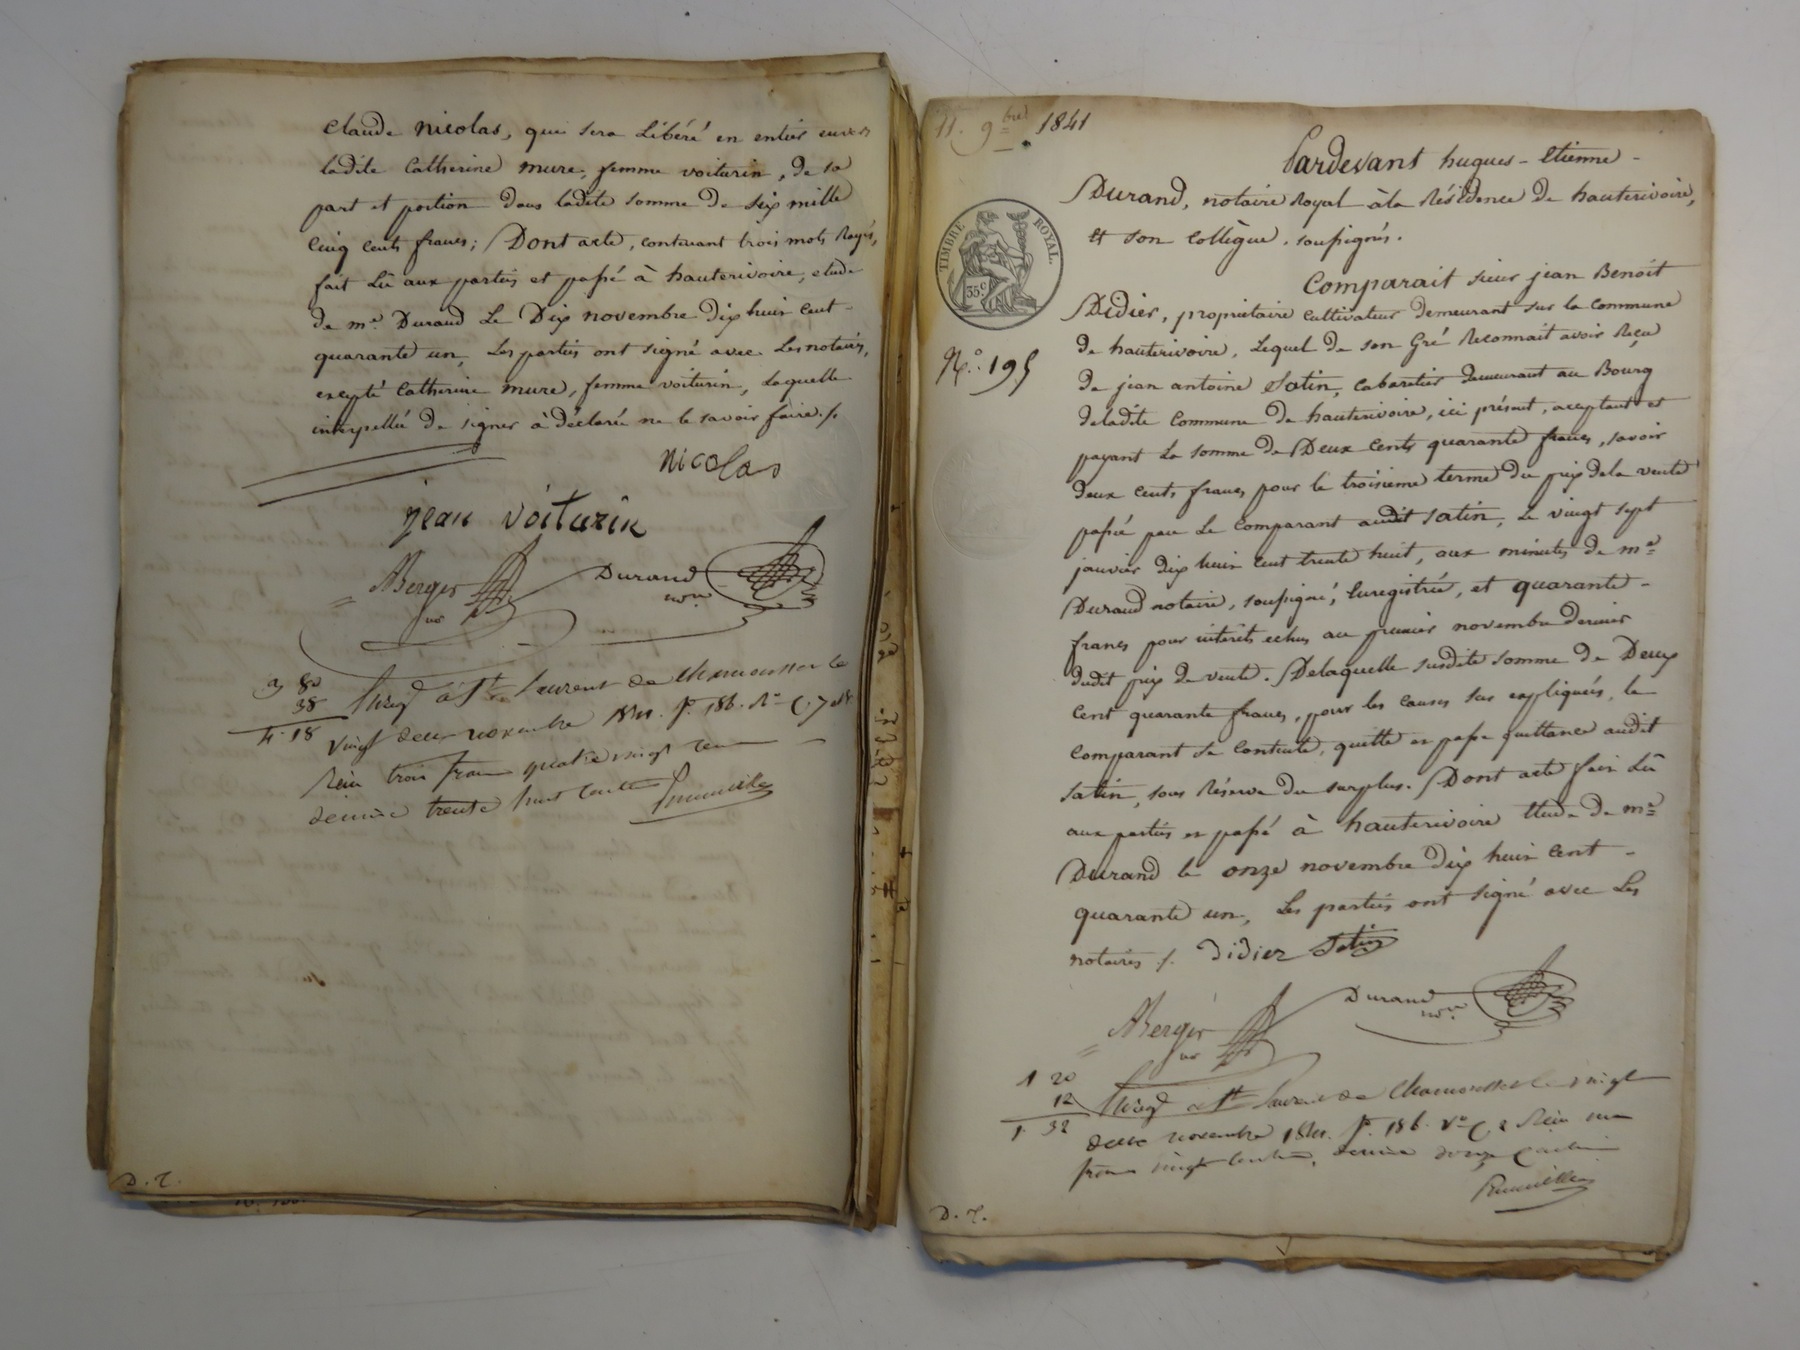 Claude Nicolas, qui sera libéré en entier envers
ladite Catherine Mure, femme voiturin, de sa
part et portion dans ladite somme de six mille
cinq cents francs; Dont acte, contenant trois mots rayés,
fait Lû aux parties et passé à hauterivoire, etude
de me. Durand Le Dix novembre dix huit cent-
quarante un, Les parties ont signé avec Les notaires,
excepté Catherine Mure, femme voiturin, Laquelle
interpellée de signer à déclaré ne le savoir faire ./.
nicolas
jean voiturin
ABerger
Durand
nore
3 80
38
4. 18
Enregé à St Laurent de Chamousset le
vingt deux novembre 1841. fo. 186. Ro C. 7
Reçu trois francs quatre vingt
décime trente huit centimes
D. T.
11. 9bre 1841
Pardevant hugues-Etienne-
Durand, notaire Royal à la Résidence de hauterivoire,
et son Collègue, soussignés.
TIMBRE ROYAL.
35c.
Comparait sieur jean Benoît
Didier, propriétaire cultivateur demeurant sur la commune
de hauterivoire, Lequel de son Gré Reconnait avoir Reçu
No. 195
de jean antoine Satin, cabaretier demeurant au Bourg
deladite Commune de hauterivoire, ici présent, acceptant et
payant La somme de Deux Cents quarante francs, savoir
deux cents francs pour le troisieme terme du prix dela vente
passée par Le Comparant audit Satin, Le vingt sept
janvier dix huit cent trente huit, aux minutes de me
Durand notaire, soussigné, Enregistrée, et quarante-
francs pour intérêts echus au premier novembre dernier
dudit prix de vente. Delaquelle susdite somme de Deux
Cent quarante francs, pour les causes sus expliquées, le
comparant se contente, quitte et passe quittance audit
Satin, sous Réserve du surplus. Dont acte fait Lû
aux parties et passé à hauterivoire Etude de me
Durand le onze novembre dix huit Cent-
quarante un, Les parties ont signé avec Les
notaires ./. Didier Satin
Durand
nore
ABerger
1 20
12
1. 32
Enregé à St Laurent de Chamousset le vingt
deux novembre 1841. fo. 186. Vo C. 2 Reçu un
franc vingt centimes, décime douze centimes
D. T.